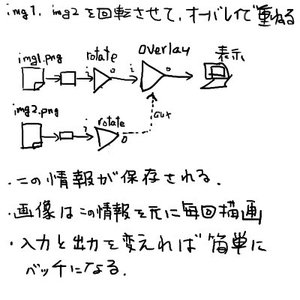 img1, img2を回転させて、オーバレイで重ねる
img1.png rotate overlay 表示
i o i o
img2.png rotate aux
i o
・この情報が保存される。
・画像はこの情報を元に毎回描画
・入力と出力を変えれば簡単に
バッチになる。